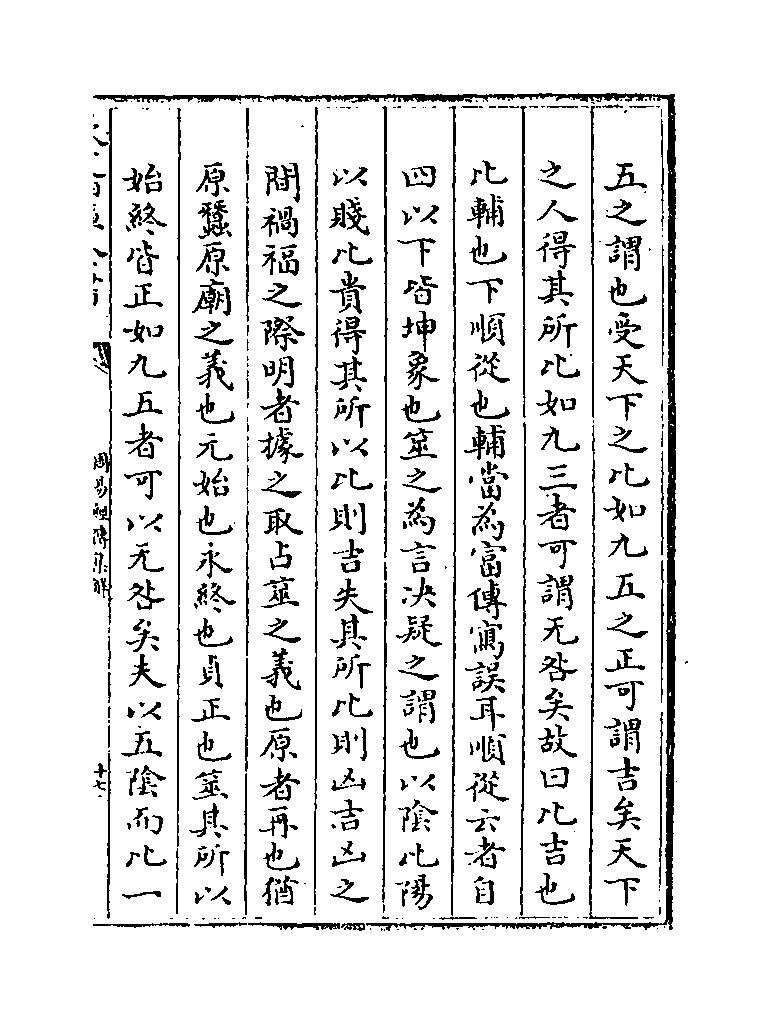 五之謂也受天下之比如九五之正可謂吉矣天下
之人得其所比如九三者可謂无咎矣故曰比吉也
比輔也下順從也輔當為富傳寫誤耳順從云者自
四以下皆坤象也筮之為言决疑之謂也以陰比陽
以賤比貴得其所以比則吉失其所比則凶吉凶之
間禍福之際明者據之取占筮之義也原者再也猶
原蠶原廟之義也元始也永終也貞正也筮其所以
始終皆正如九五者可以无咎矣夫以五陰而比一
周易經傳集解
十七